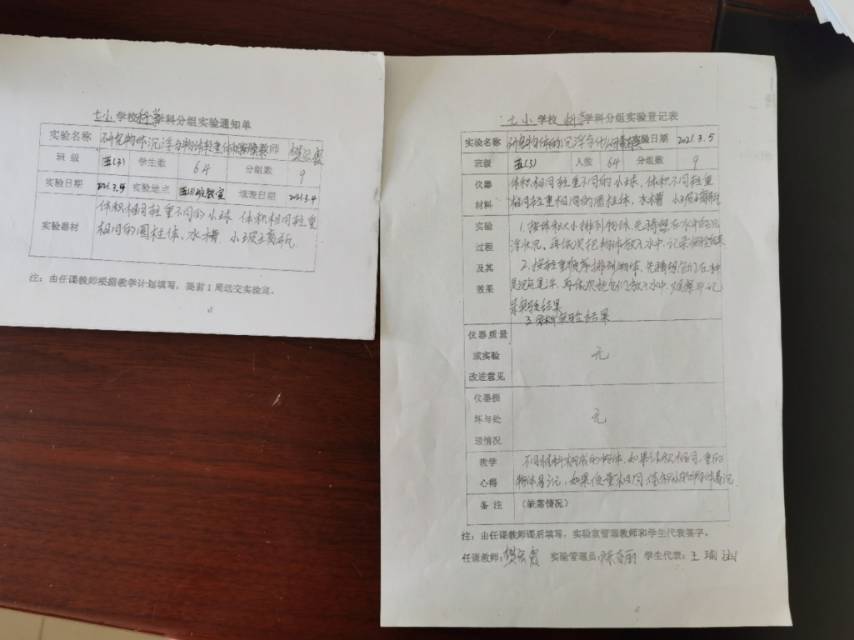 七小学校科学学科分组实验通知单
实验名称 研究物体沉浮与物体轻重体积 教师
班级 五(3) 学生数 64 分组数 9
实验日期 2021.3.4 实验地点 五(3)班教室 填表日期 2021.3.4
实验器材 体积相同轻重不同的小球 体积不同轻重
相同的圆柱体、水槽 小玻璃瓶
注:由任课教师根据教学计划填写,提前1周送交实验室。
七小学校 科学学科分组实验登记表
实验名称 研究物体的沉浮与什么 实验日期 2021.3.5
班级 五(3) 人数 64 分组数 9
仪器 体积相同轻重不同的小球、体积不同轻重
材料 相同轻重相同的圆柱体、水槽 小玻璃瓶
实验 1.按体积大小排列物体,先猜想在水中的沉
过程 浮状况,再依次把物体放入水中,记录实验结果
及其 2.按轻重顺序排列物体,先猜想它们在水中
效果 是沉是浮,再依次把它们放入水中,观察并记
录实验结果
3.分析实验结果
仪器质量
或实验 无
改进意见
仪器损
坏与处 无
理情况
教学 不同材料构成的物体,如果体积相同,重的
心得 物体易沉,如果质量相同,体积小的物体易沉
备注 (缺席情况)
注:由任课教师课后填写,实验室管理教师和学生代表签字。
任课教师: 实验管理员: 学生代表:王